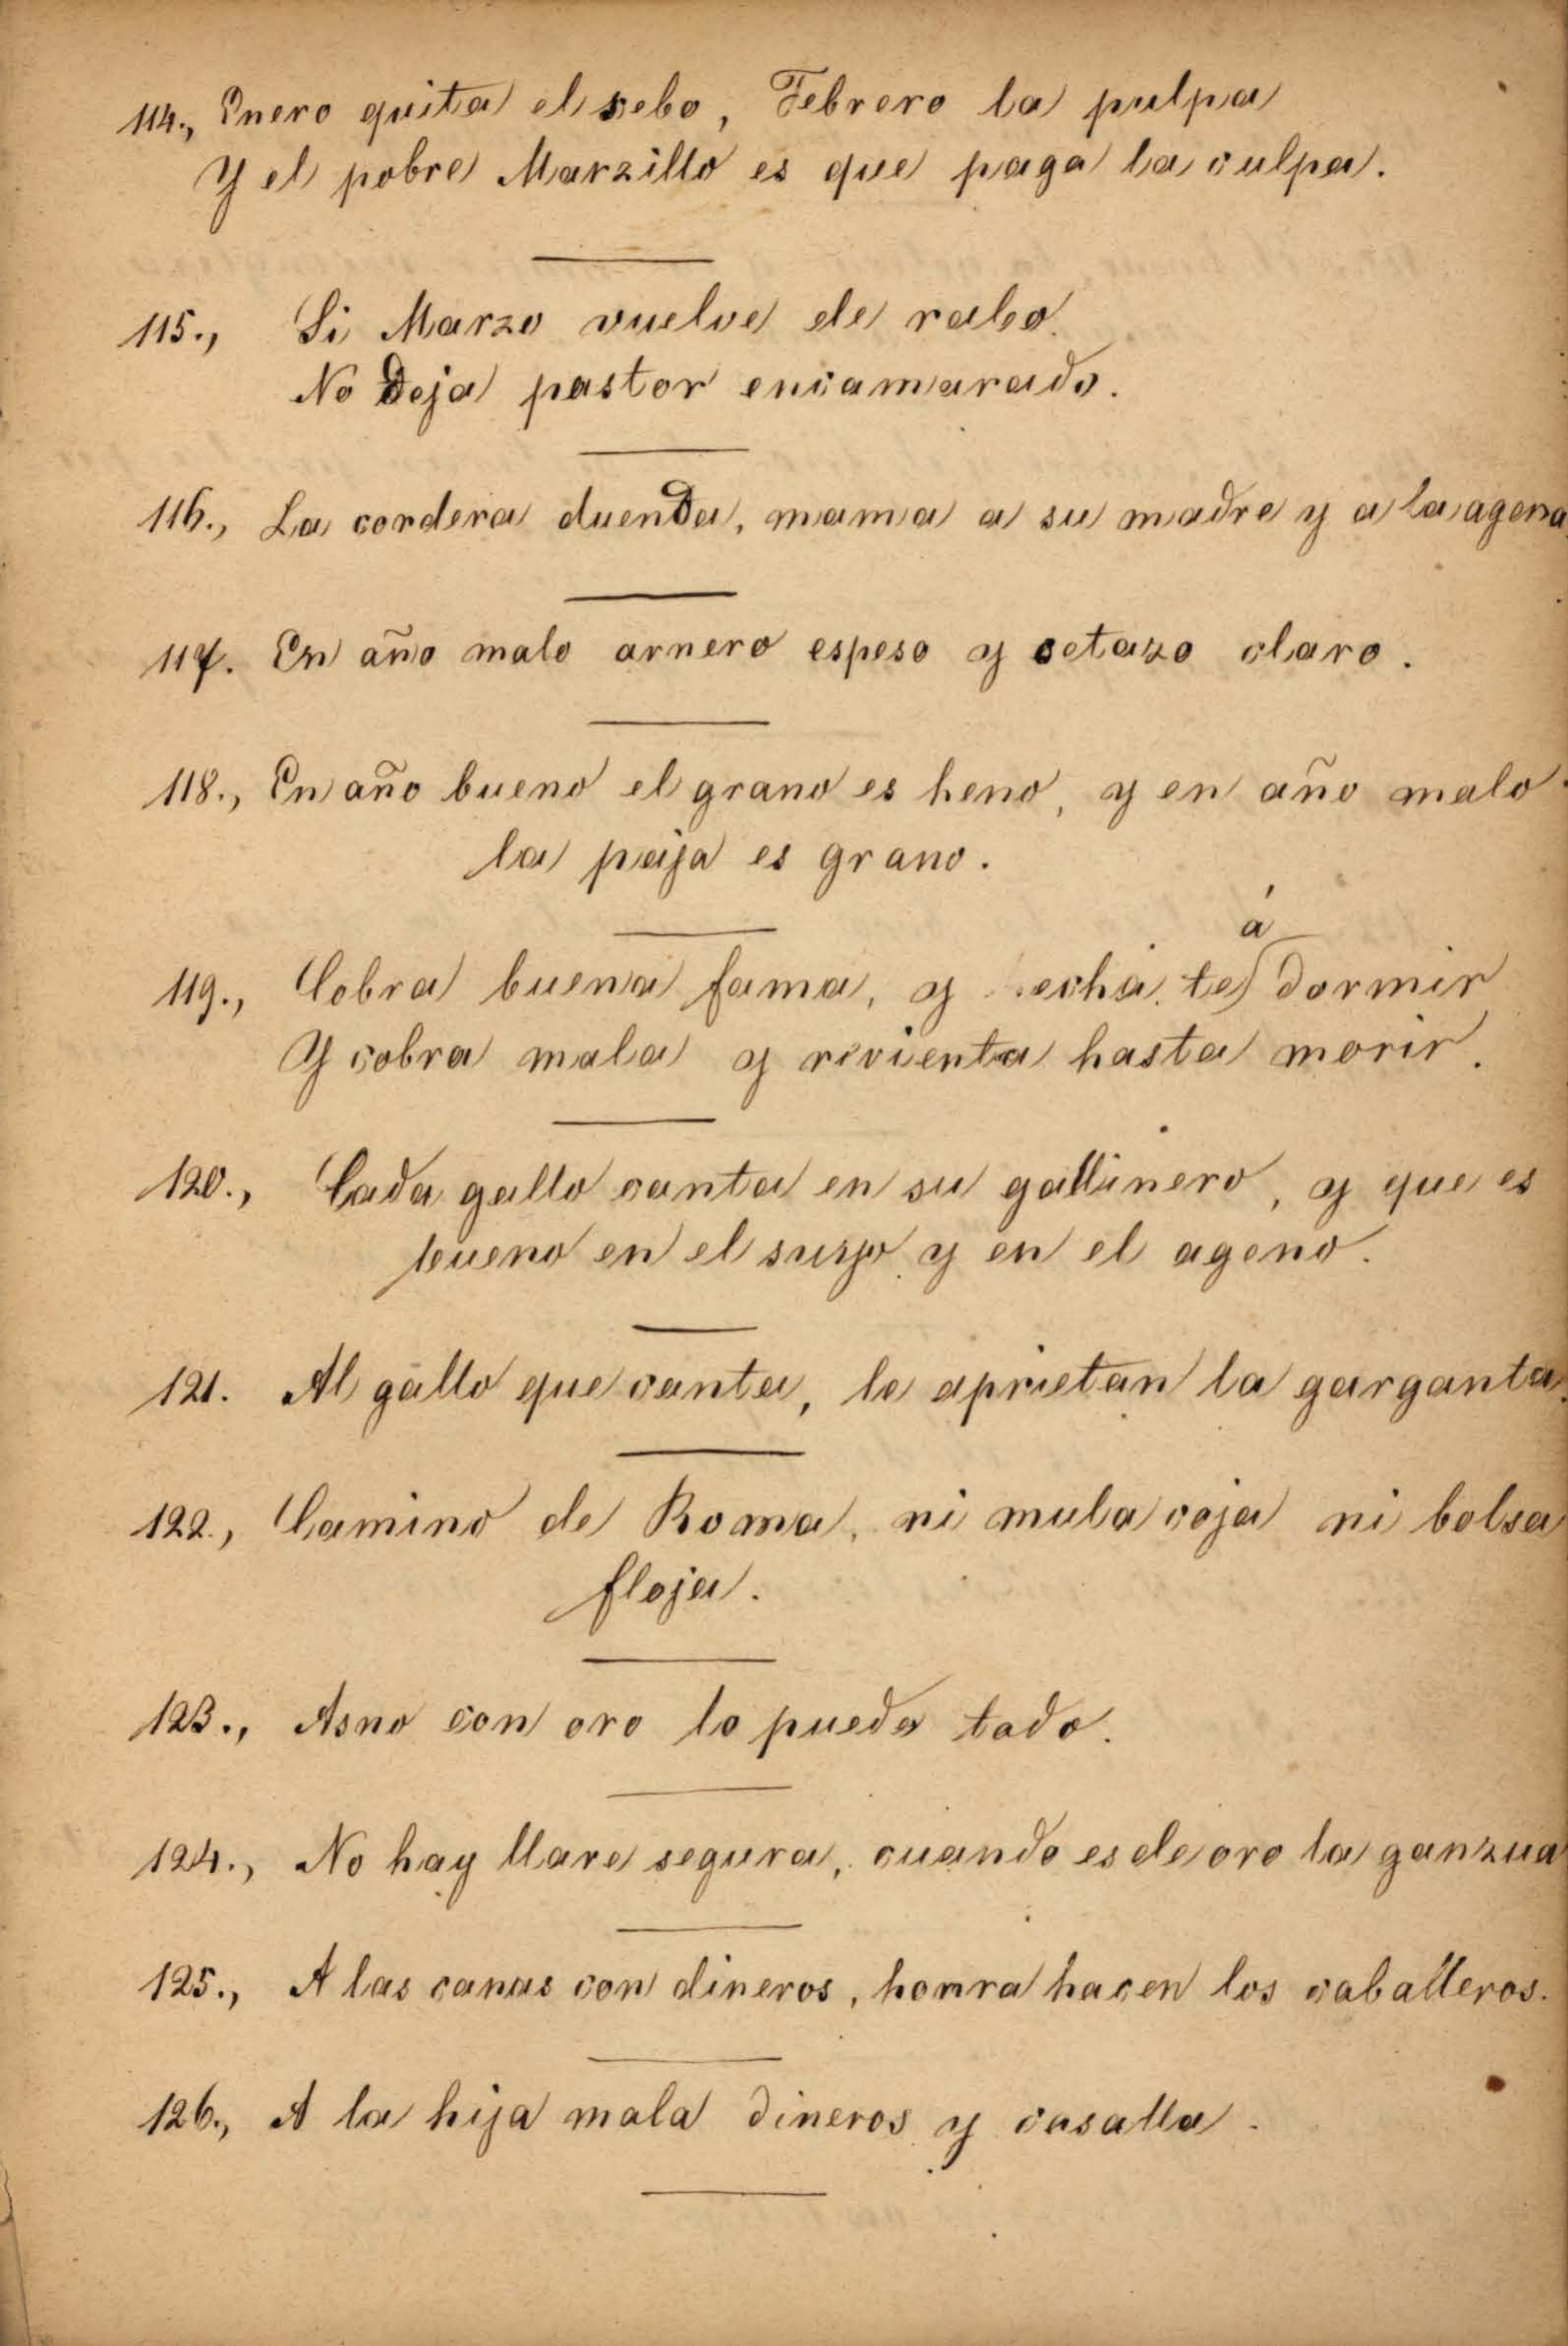 114., Enero quita el sebo, Febrero la pulpa
Y el pobre Marzillo es que paga la culpa.
115., Si Marzo vuelve de rabo.
No deja pastor encamarado.
116., La cordera duenda, mama a su madre y a la agena.
117. En año malo arnero espeso y cetazo claro.
118., En año bueno el grano es heno, y en año malo
la paja es grano.
á
119., Cobra buena fama, y echa te dormir
Y cobra mala y rivienta hasta morir.
120., Cada gallo canta en su gallinero, y que es
bueno en el suyo y en el ageno.
121. Al gallo que canta, le aprietan la garganta.
122., Camino de Roma, ni mula coja ni bolsa
floja.
123., Asno con oro lo puede todo.
124., No hay llave segura, cuando es de oro la ganzua
125., A las canas con dineros, honra hacen los caballeros.
126., A la hija mala dineros y casalla.